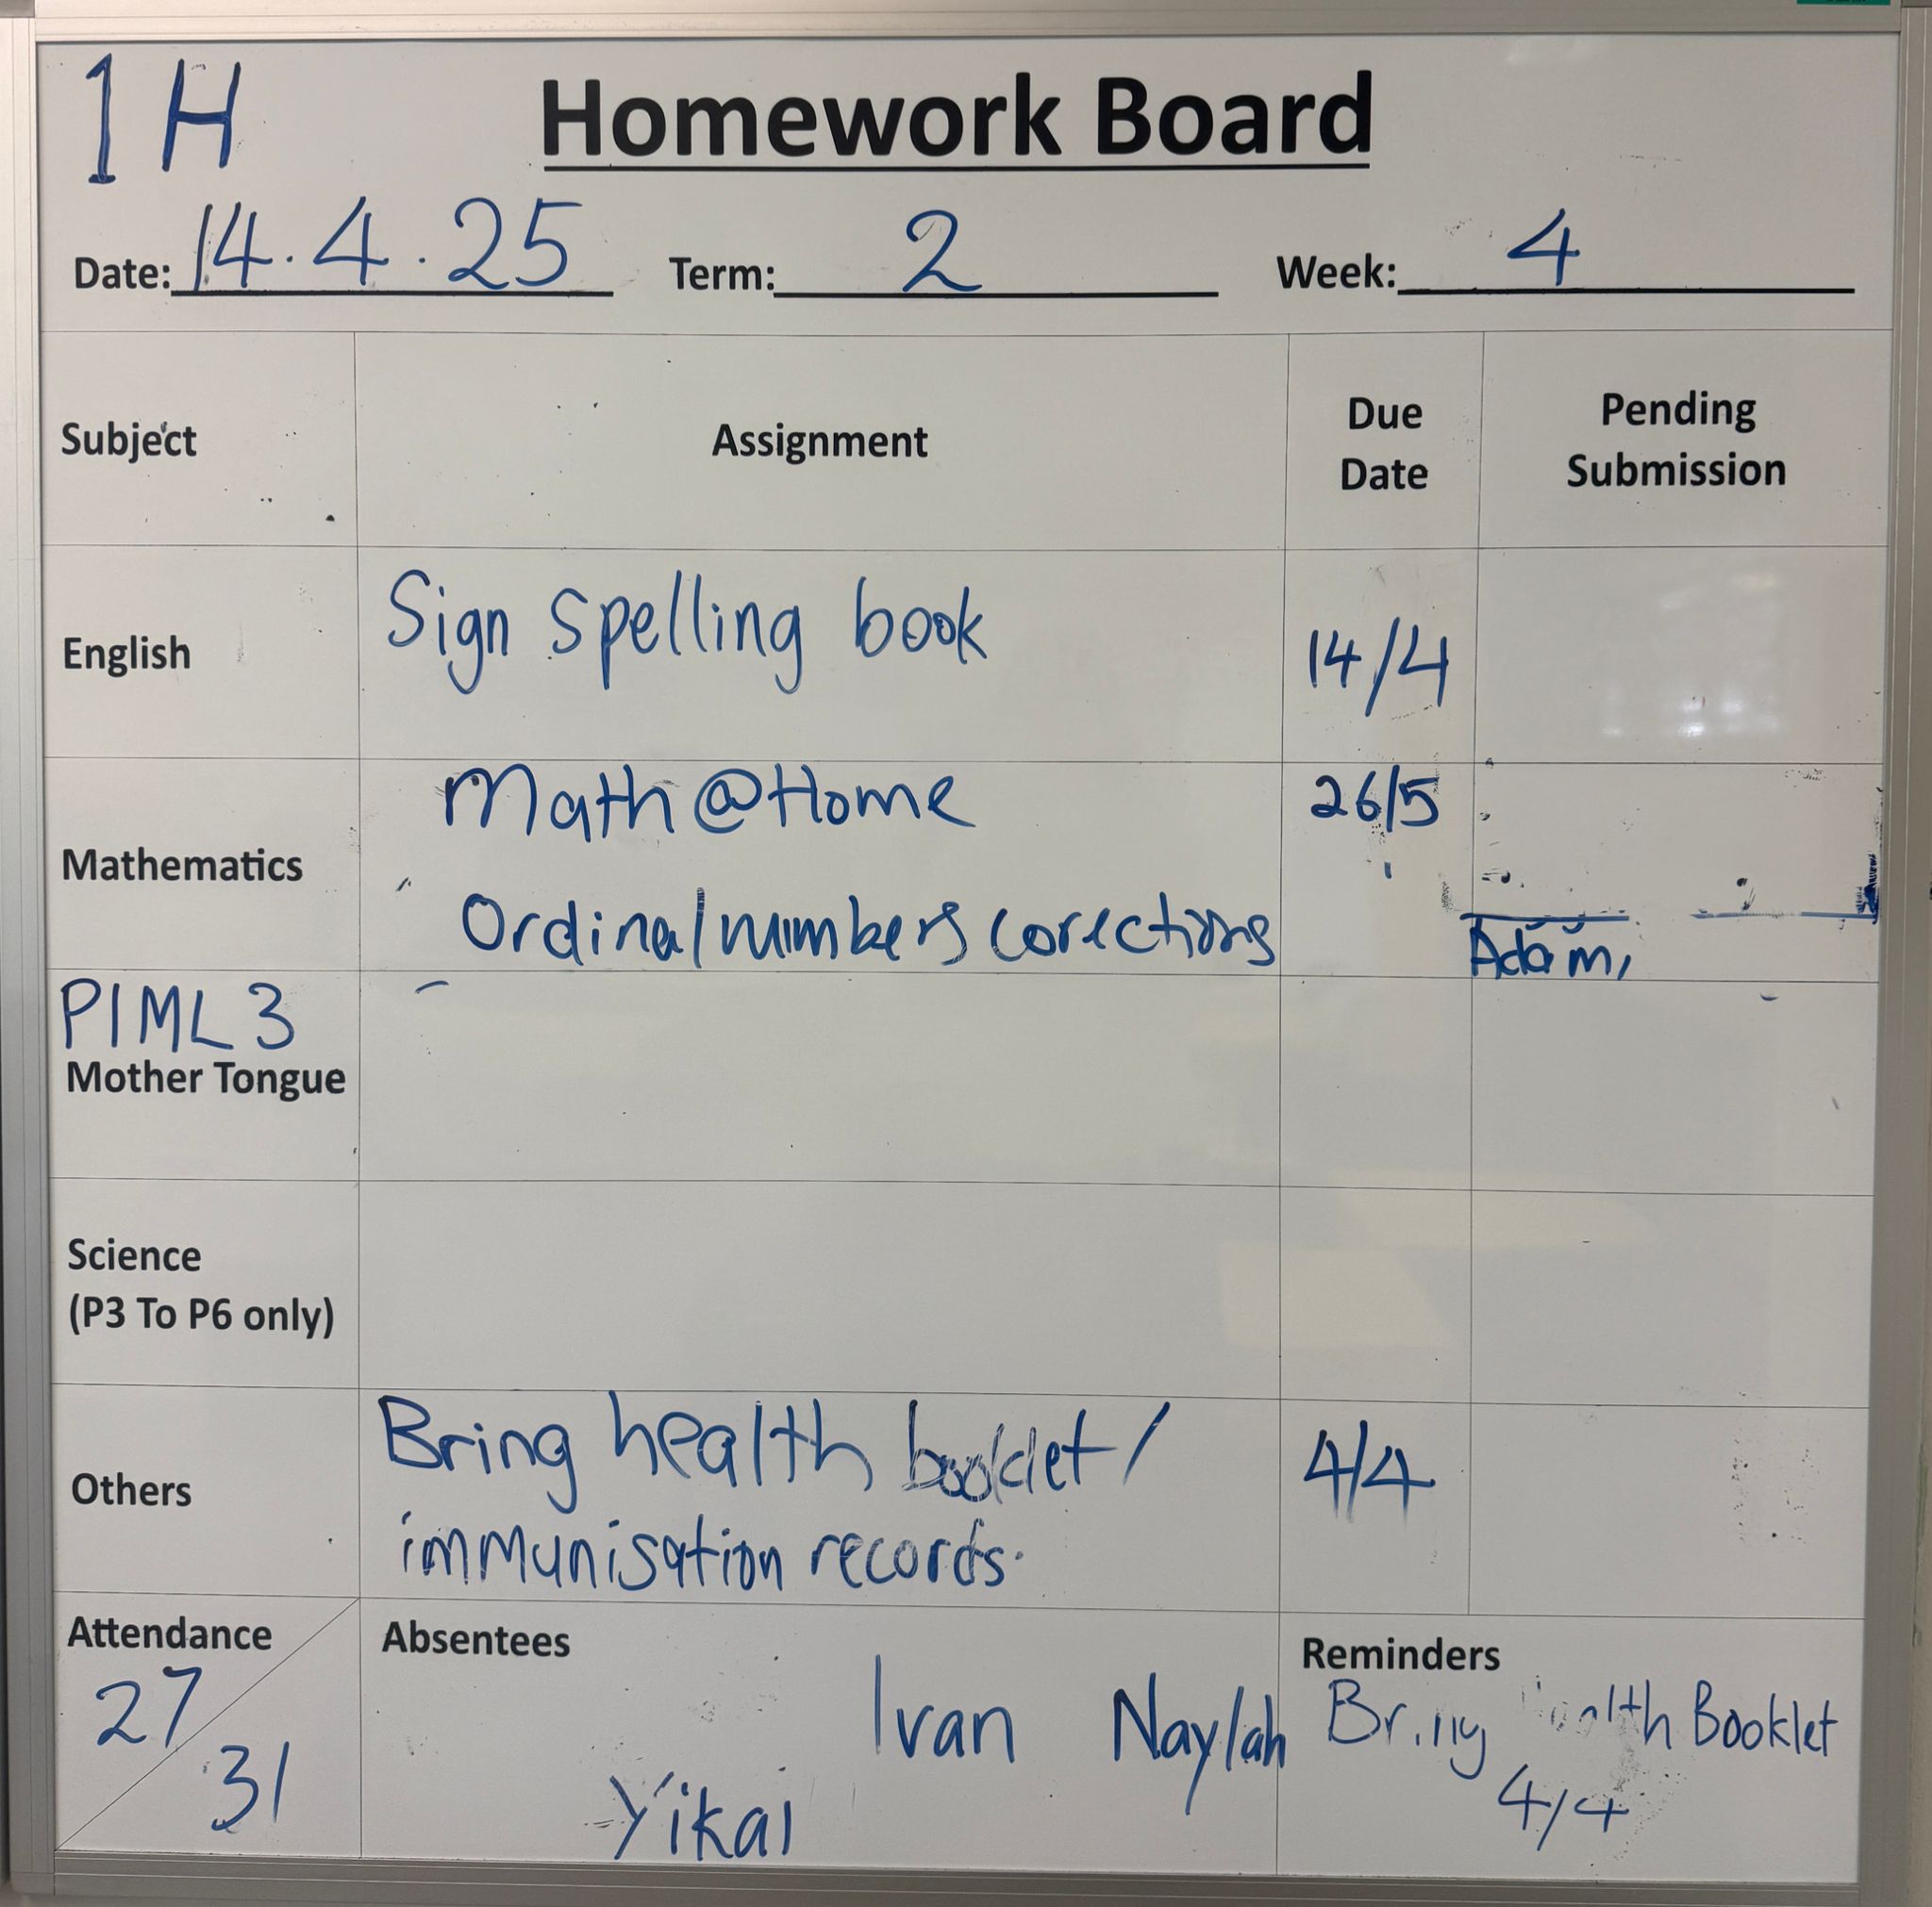 1H Homework Board
Date: 14.4.25 Term: 2 Week: 4
Subject Assignment Due Date Pending Submission
English Sign spelling book 14/4
Mathematics Math@Home 26/5
Ordinal numbers corections Adam,
P1ML3
Mother Tongue
Science
(P3 To P6 only)
Others Bring health booklet/ 4/4
immunisation records.
Attendance Absentees Reminders
27 Ivan Naylah Bring Booklet
31 Yikai 4/4